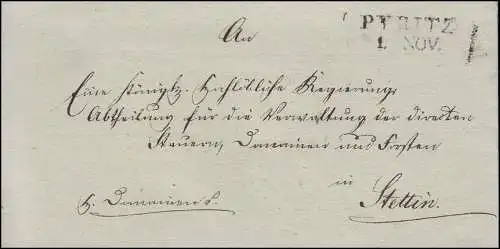 PYRITZ
1. NOV.
An
Eine Königl. Hochlöbliche Regierungs
Abtheilung für die Verwaltung der directen
Steuern, Domainen und Forsten
in
Stettin.
H. Domainen S.